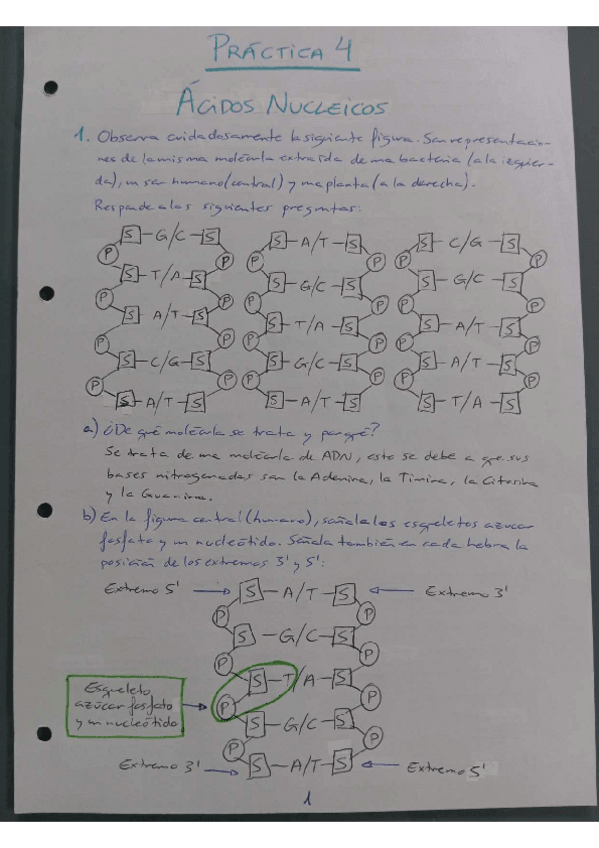 PRÁCTICA 4
ÁCIDOS NUCLEICOS
1. Observa cuidadosamente la siguiente figura. Son representacio-
nes de la misma molécula extraída de una bacteria (a la izquier-
da), un ser humano (central) y una planta (a la derecha).
Responde a las siguientes preguntas:
S G/C S S A/T S S C/G S
P P P P P P
S T/A S S G/C S S G/C S
P P P P P P
S A/T S S T/A S S A/T S
P P P P P P
S C/G S S G/C S S A/T S
P P P P P P
S A/T S S A/T S S T/A S
a) ¿De qué molécula se trata y por qué?
Se trata de una molécula de ADN, esto se debe a que sus
bases nitrogenadas son la Adenina, la Timina, la Citosina
y la Guanina.
b) En la figura central (humano), señala los esqueletos azúcar
fosfato y un nucleótido. Señala también en cada hebra la
posición de los extremos 3' y 5':
Extremo 5' S A/T S Extremo 3'
P P
S G/C S
P P
S T/A S
Esqueleto
azúcar fosfato
y un nucleótido
P P
S G/C S
P P
Extremo 3' S A/T S Extremo 5'
1